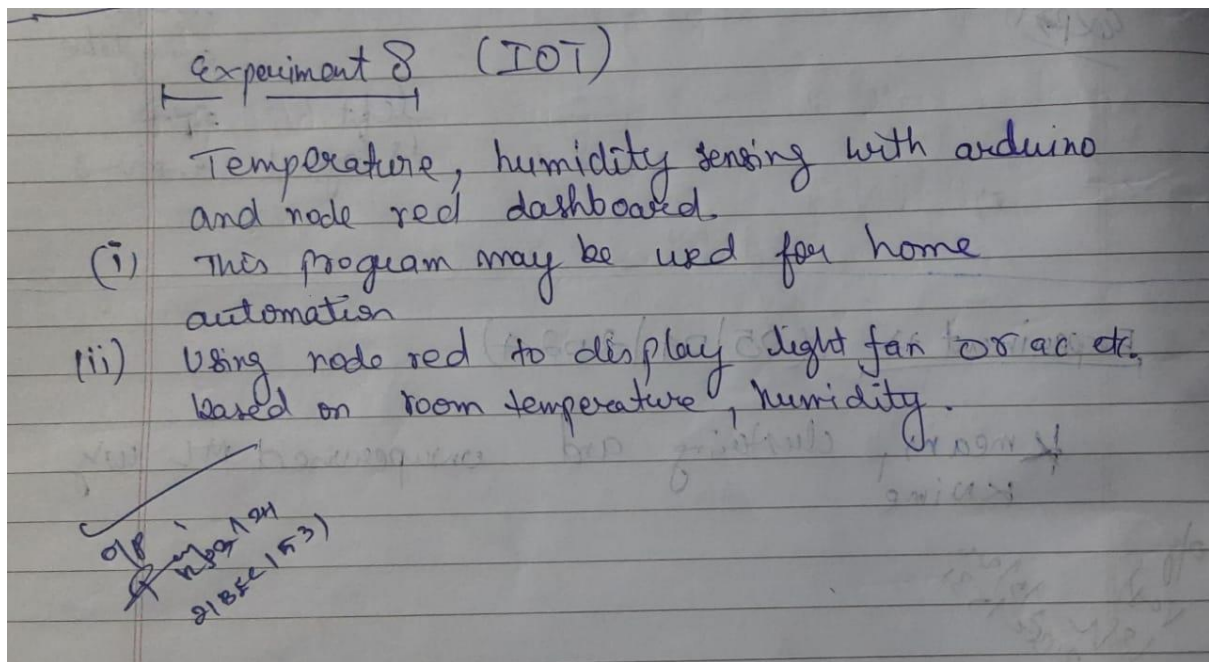 Experiment 8 (IOT)
Temperature, humidity sensing with arduino
and node red dashboard.
(i) This program may be used for home
automation
(ii) Using node red to display light fan or ac etc.
based on room temperature, humidity.
O/P